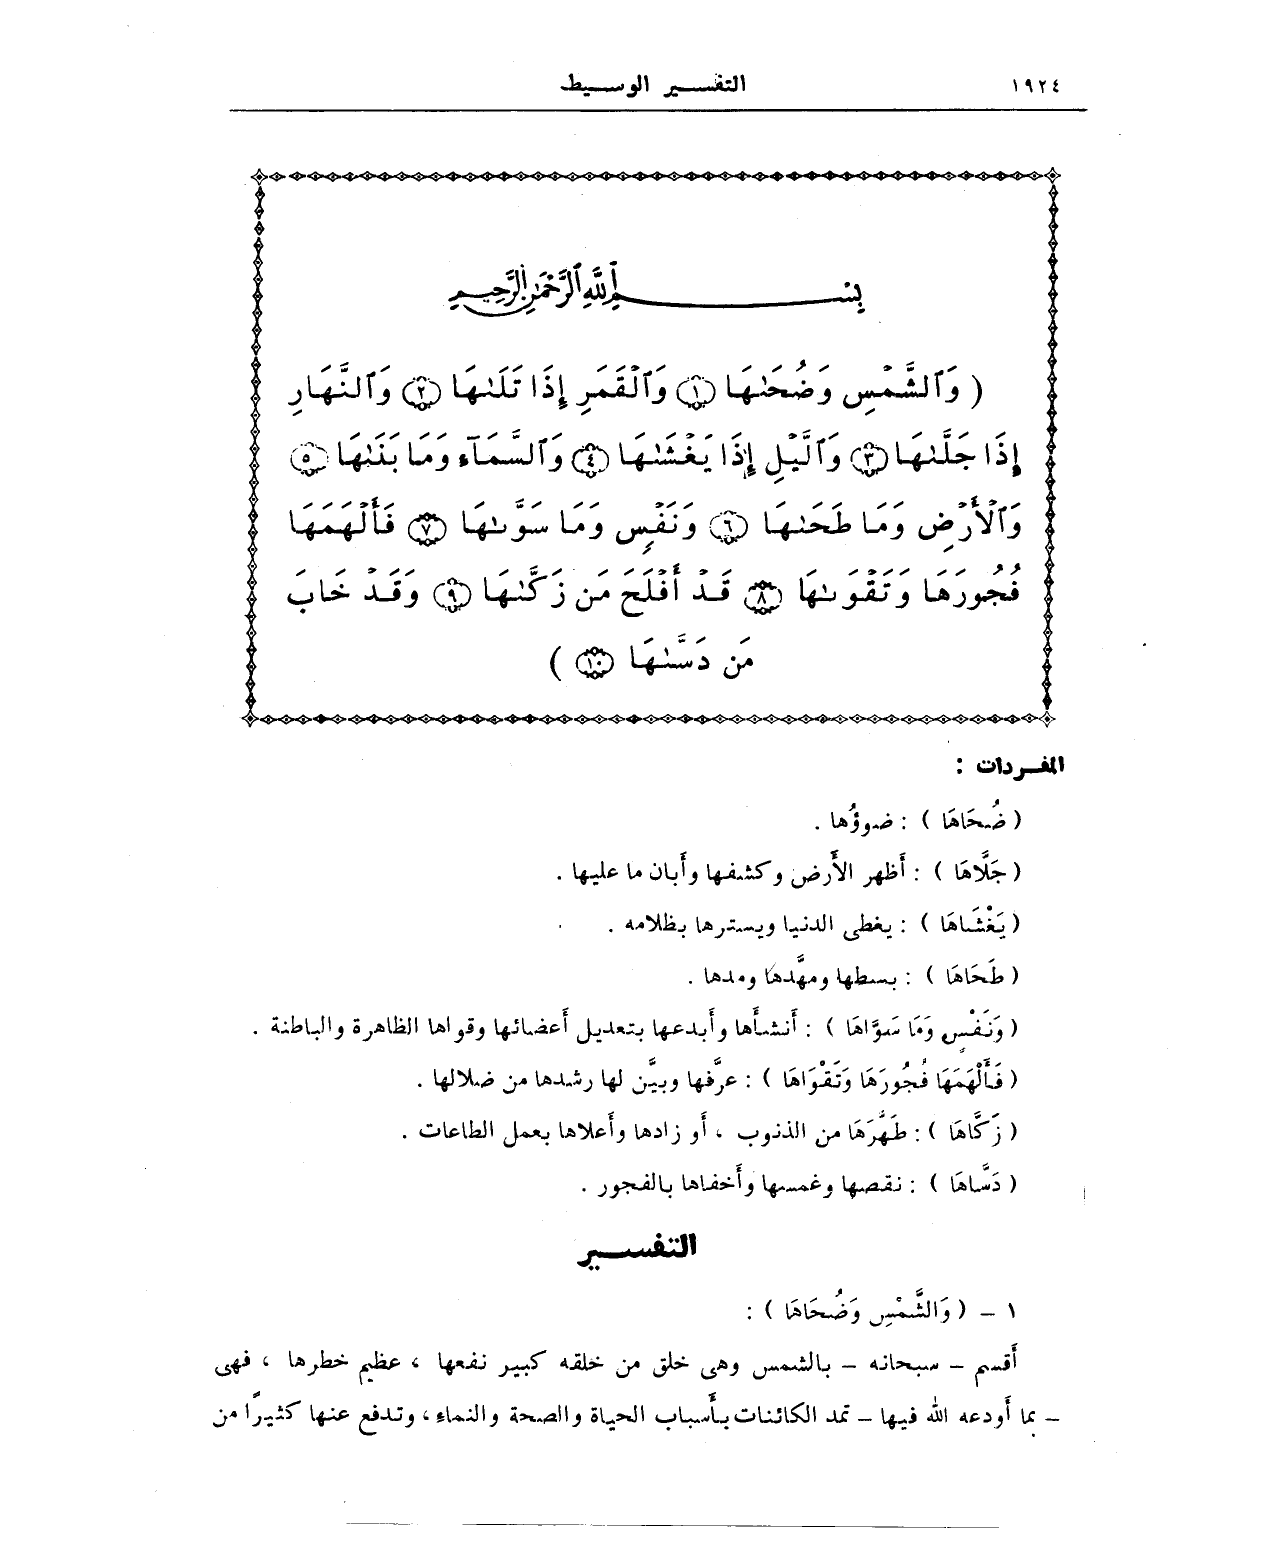 ١٩٢٤
التفسير الوسيط
بِسْمِ ٱللَّهِ ٱلرَّحْمَٰنِ ٱلرَّحِيمِ
( وَٱلشَّمْسِ وَضُحَىٰهَا ١ وَٱلْقَمَرِ إِذَا تَلَىٰهَا ٢ وَٱلنَّهَارِ
إِذَا جَلَّىٰهَا ٣ وَٱلَّيْلِ إِذَا يَغْشَىٰهَا ٤ وَٱلسَّمَآءِ وَمَا بَنَىٰهَا ٥
وَٱلْأَرْضِ وَمَا طَحَىٰهَا ٦ وَنَفْسٍ وَمَا سَوَّىٰهَا ٧ فَأَلْهَمَهَا
فُجُورَهَا وَتَقْوَىٰهَا ٨ قَدْ أَفْلَحَ مَن زَكَّىٰهَا ٩ وَقَدْ خَابَ
مَن دَسَّىٰهَا ١٠ )
المفردات :
( ضُحَاهَا ) : ضوؤُها .
( جَلَّاهَا ) : أَظهر الأَرض وكشفها وأَبان ما عليها .
( يَغْشَاهَا ) : يغطى الدنيا ويسترها بظلامه .
( طَحَاهَا ) : بسطها ومهَّدها ومدها .
( وَنَفْسٍ وَمَا سَوَّاهَا ) : أَنشأَها وأَبدعها بتعديل أَعضائها وقواها الظاهرة والباطنة .
( فَأَلْهَمَهَا فُجُورَهَا وَتَقْوَاهَا ) : عرَّفها وبيَّن لها رشدها من ضلالها .
( زَكَّاهَا ) : طَهَّرَهَا من الذنوب ، أَو زادها وأَعلاها بعمل الطاعات .
( دَسَّاهَا ) : نقصها وغمسها وأَخفاها بالفجور .
التفسير
١ – ( وَالشَّمْسِ وَضُحَاهَا ) :
أَقسم – سبحانه – بالشمس وهى خلق من خلقه كبير نفعها ، عظيم خطرها ، فهى
– بما أَودعه الله فيها – تمد الكائنات بأَسباب الحياة والصحة والنماء ، وتدفع عنها كثيرًا من